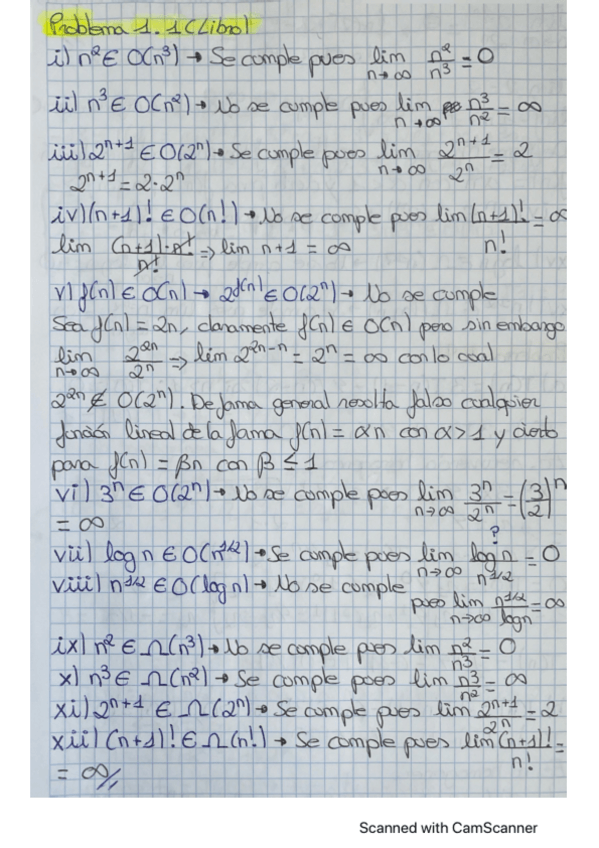 Problema 1.1 (Libro)
i) n² ∈ O(n³) → Se cumple pues lim n→∞ n²/n³ = 0
ii) n³ ∈ O(n²) → No se cumple pues lim n→∞ n³/n² = ∞
iii) 2ⁿ⁺¹ ∈ O(2ⁿ) → Se cumple pues lim n→∞ 2ⁿ⁺¹/2ⁿ = 2
2ⁿ⁺¹ = 2·2ⁿ
iv) (n+1)! ∈ O(n!) → No se cumple pues lim (n+1)!/n! = ∞
lim (n+1)·n!/n! ⇒ lim n+1 = ∞
v) f(n) ∈ O(n) → 2^f(n) ∈ O(2ⁿ) → No se cumple
Sea f(n) = 2n, claramente f(n) ∈ O(n) pero sin embargo
lim n→∞ 2²ⁿ/2ⁿ ⇒ lim 2²ⁿ⁻ⁿ = 2ⁿ = ∞ con lo cual
2²ⁿ ∉ O(2ⁿ). De forma general resulta falso cualquier
función lineal de la forma f(n) = αn con α > 1 y cierto
para f(n) = βn con β ≤ 1
vi) 3ⁿ ∈ O(2ⁿ) → No se cumple pues lim n→∞ 3ⁿ/2ⁿ = (3/2)ⁿ
= ∞
?
vii) log n ∈ O(n^1/2) → Se cumple pues lim n→∞ log n/n^1/2 = 0
viii) n^1/2 ∈ O(log n) → No se cumple
pues lim n→∞ n^1/2/log n = ∞
ix) n² ∈ Ω(n³) → No se cumple pues lim n²/n³ = 0
x) n³ ∈ Ω(n²) → Se cumple pues lim n³/n² = ∞
xi) 2ⁿ⁺¹ ∈ Ω(2ⁿ) → Se cumple pues lim 2ⁿ⁺¹/2ⁿ = 2
xii) (n+1)! ∈ Ω(n!) → Se cumple pues lim (n+1)!/n! =
= ∞//
Scanned with CamScanner